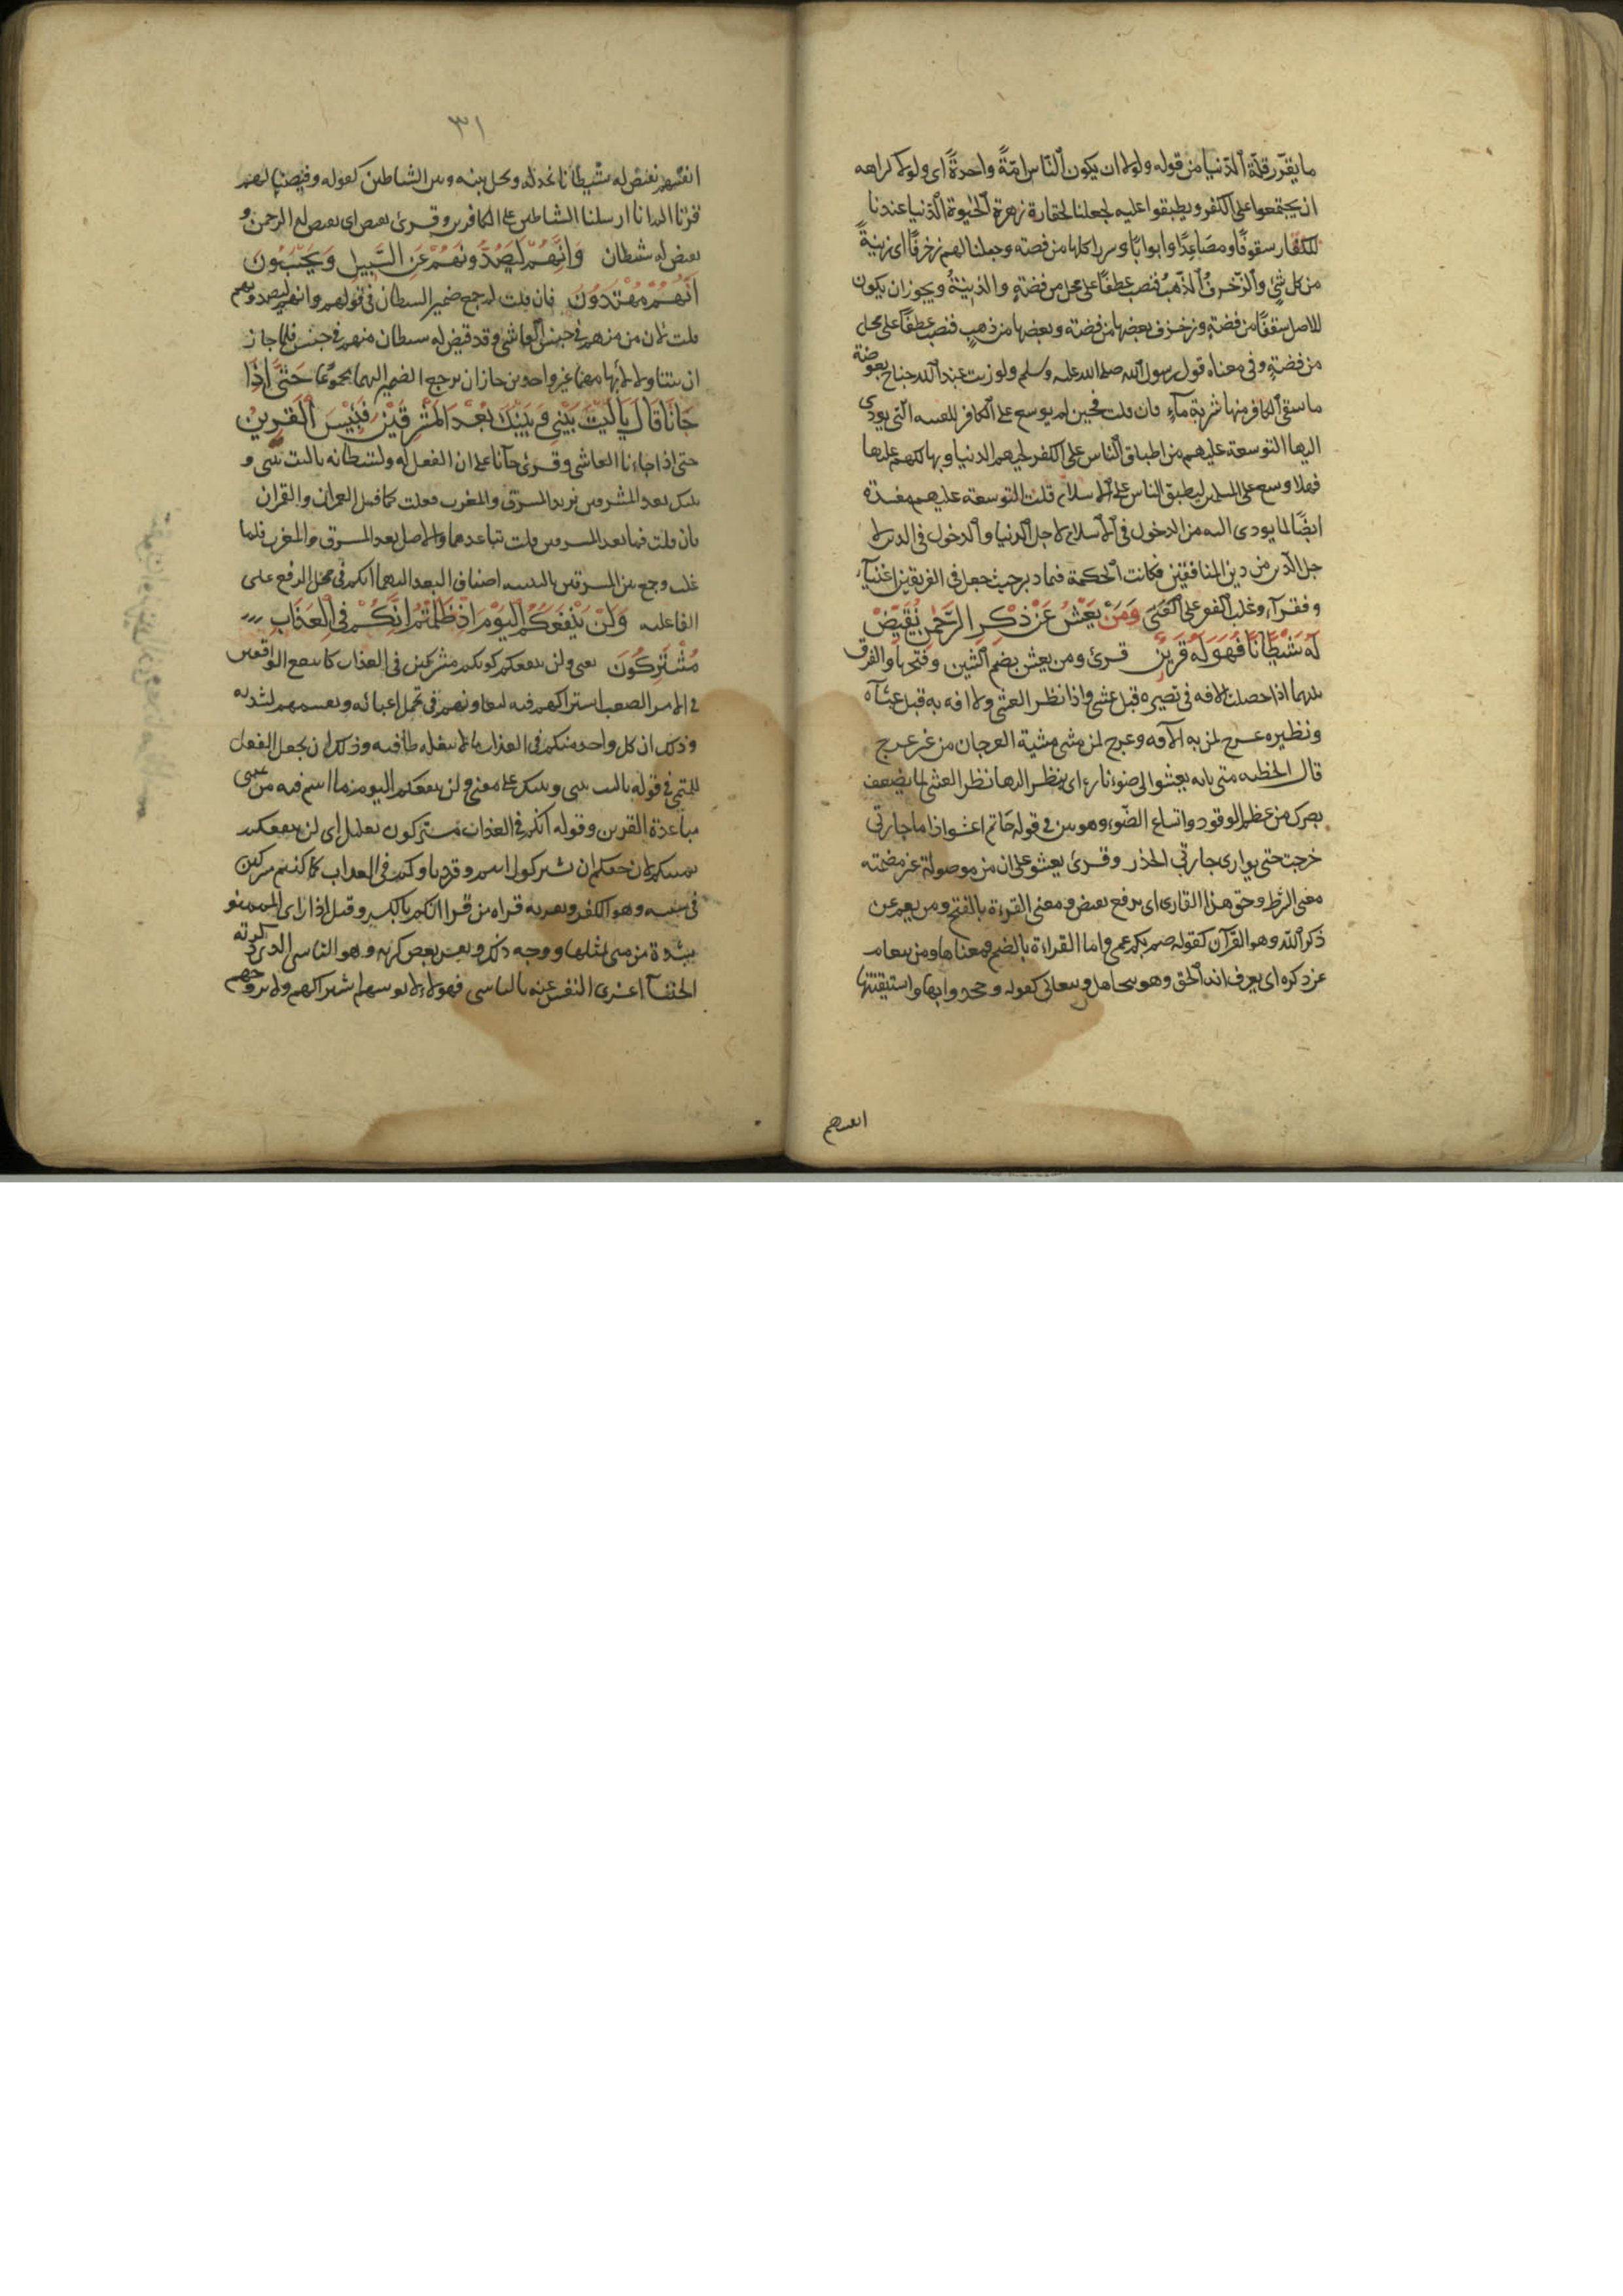 ما يقرر قلة الدنيا من قوله ولولا ان يكون الناس امة واحدة اى ولولا كراهه
ان يجتمعوا على الكفر ويطبقوا عليه لجعلنا لحقارة زهرة الحيوة الدنيا عندنا
للكفار سقوفا ومصاعدا وابوابا وسررا كلها من فضته وجعلنا لهم زخرفا اى زينة
من كل شئ والزخرف الذهب فنصب عطفا على محل من فضة والزينة ويجوز ان يكون
الاصل سقفا من فضة وزخرف بعضها من فضته وبعضها من ذهب فنصب عطفا على محل
من فضة وفى معناه قول رسول الله صلى الله عليه وسلم ولو زنت عند الله جناح بعوضة
ما سقى الكافر منها شربة ماء فان قلت فحين لم يوسع على الكافر للفتنه التى يودى
اليها التوسعة عليهم من اطباق الناس على الكفر لحبهم الدنيا وتهالكهم عليها
فهلا وسع على المسلمين ليطبق الناس على الاسلام قلت التوسعة عليهم مفسدة
ايضا لما يودى اليه من الدخول فى الاسلام لاجل الدنيا والدخول فى الدين لا
جل الدنيا من دين المنافقين فكانت الحكمة فيما دبر حيث جعل فى الفريقين اغنياء
وفقراء وغلب الفقر على الغنى ومن يعش عن ذكر الرحمن نقيض
له شيطانا فهو له قرين قرئ ومن يعش بضم الشين وفتحها والفرق
بينهما اذا حصلت الافه فى بصره قيل عشى واذا نظر نظر العشى ولا افه به قيل عشا
ونظيره عرج لمن به الآفه وعرج لمن مشى مشية العرجان من غير عرج
قال الحطيه متى تاته تعشوا الى ضوء ناره اى ينظر اليها نظر العشى لما يضعف
بصرك من عظم الوقود واتساع الضوء وهو بين فى قوله حاتم اعشوا اذا ما جارتى
خرجت حتى يوارى جارتى الخدر وقرئ يعشو على ان من موصولة غير مضمنه
معنى الشرط وحق هذا القارى اى يرفع نقيض ومعنى القراءة بالفتح ومن يعم عن
ذكر الله وهو القرآن كقوله صم بكم عمى واما القراءة بالضم فمعناها ومن يتعام
عن ذكره اى يعرف انه الحق وهو يتجاهل ويتعابى كقوله وجحدوا بها واستيقنتها
انفسهم
٣١
انفسهم نقيض له شيطانا نخذله ونحل بينه وبين الشياطين كقوله وقيضنا لهم
قرنا الم انا ارسلنا الشياطين على الكافرين وقرئ نقيض اى يقيض له الرحمن و
يقيض له شيطان وانهم ليصدونهم عن السبيل ويحسبون
انهم مهتدون فان قلت لم جمع ضمير الشيطان فى قولهم وانهم ليصدونهم
قلت لان من مبهم فى جنس العاشى وقد قيض له شيطان مبهم فى جنس فلما جاز
ان يتناولا لابهامهما غير واحدين جاز ان يرجع الضمير اليهما مجموعا حتى اذا
جانا قال يا ليت بينى وبينك بعد المشرقين فبئس القرين
حتى اذا جاءنا العاشى وقرئ جاآنا على ان الفعل له ولشيطانه يا ليت بينى و
بينك بعد المشرقين يريد المشرق والمغرب فغلب كما قيل العمران والقمران
فان قلت فما بعد المشرقين قلت تباعدهما والاصل بعد المشرق والمغرب فلما
غلب وجمع بين المشرقين بالتثنيه اضاف البعد اليهما انكم فى محل الرفع على
الفاعليه ولن ينفعكم اليوم اذ ظلمتم انكم فى العذاب
مشتركون يعنى ولن ينفعكم كونكم مشتركين فى العذاب كما ينفع الواقعين
فى الامر الصعب اشتراكهم فيه لتعاونهم فى تحمل اعبائه وتقسمهم لشدته
وذلك ان كل واحد منكم فى العذاب ما لا يبلغه طاقته وذلك ان يجعل الفعل
للتمنى فى قوله يا ليت بينى وبينك على معنى ولن ينفعكم اليوم ما انتم فيه من تمنى
مباعدة القرين وقوله انكم فى العذاب مشتركون تعليل اى لن ينفعكم
تمنيكم لان حقكم ان تشتركوا انتم وقرناوكم فى العداب كما كنتم مشتركين
فى سببه وهو الكفر وتعريه قراه من قرا انكم بالكسر وقيل اذا راى الممنو
بشدة من منى بمثلها ووجه ذلك ونفس بعض كربه وهو التاسى الدى ذكرته
الخنسآ اعزى النفس عنه بالتاسى فهولاء لا يوسيهم اشتراكهم ولا يروحهم